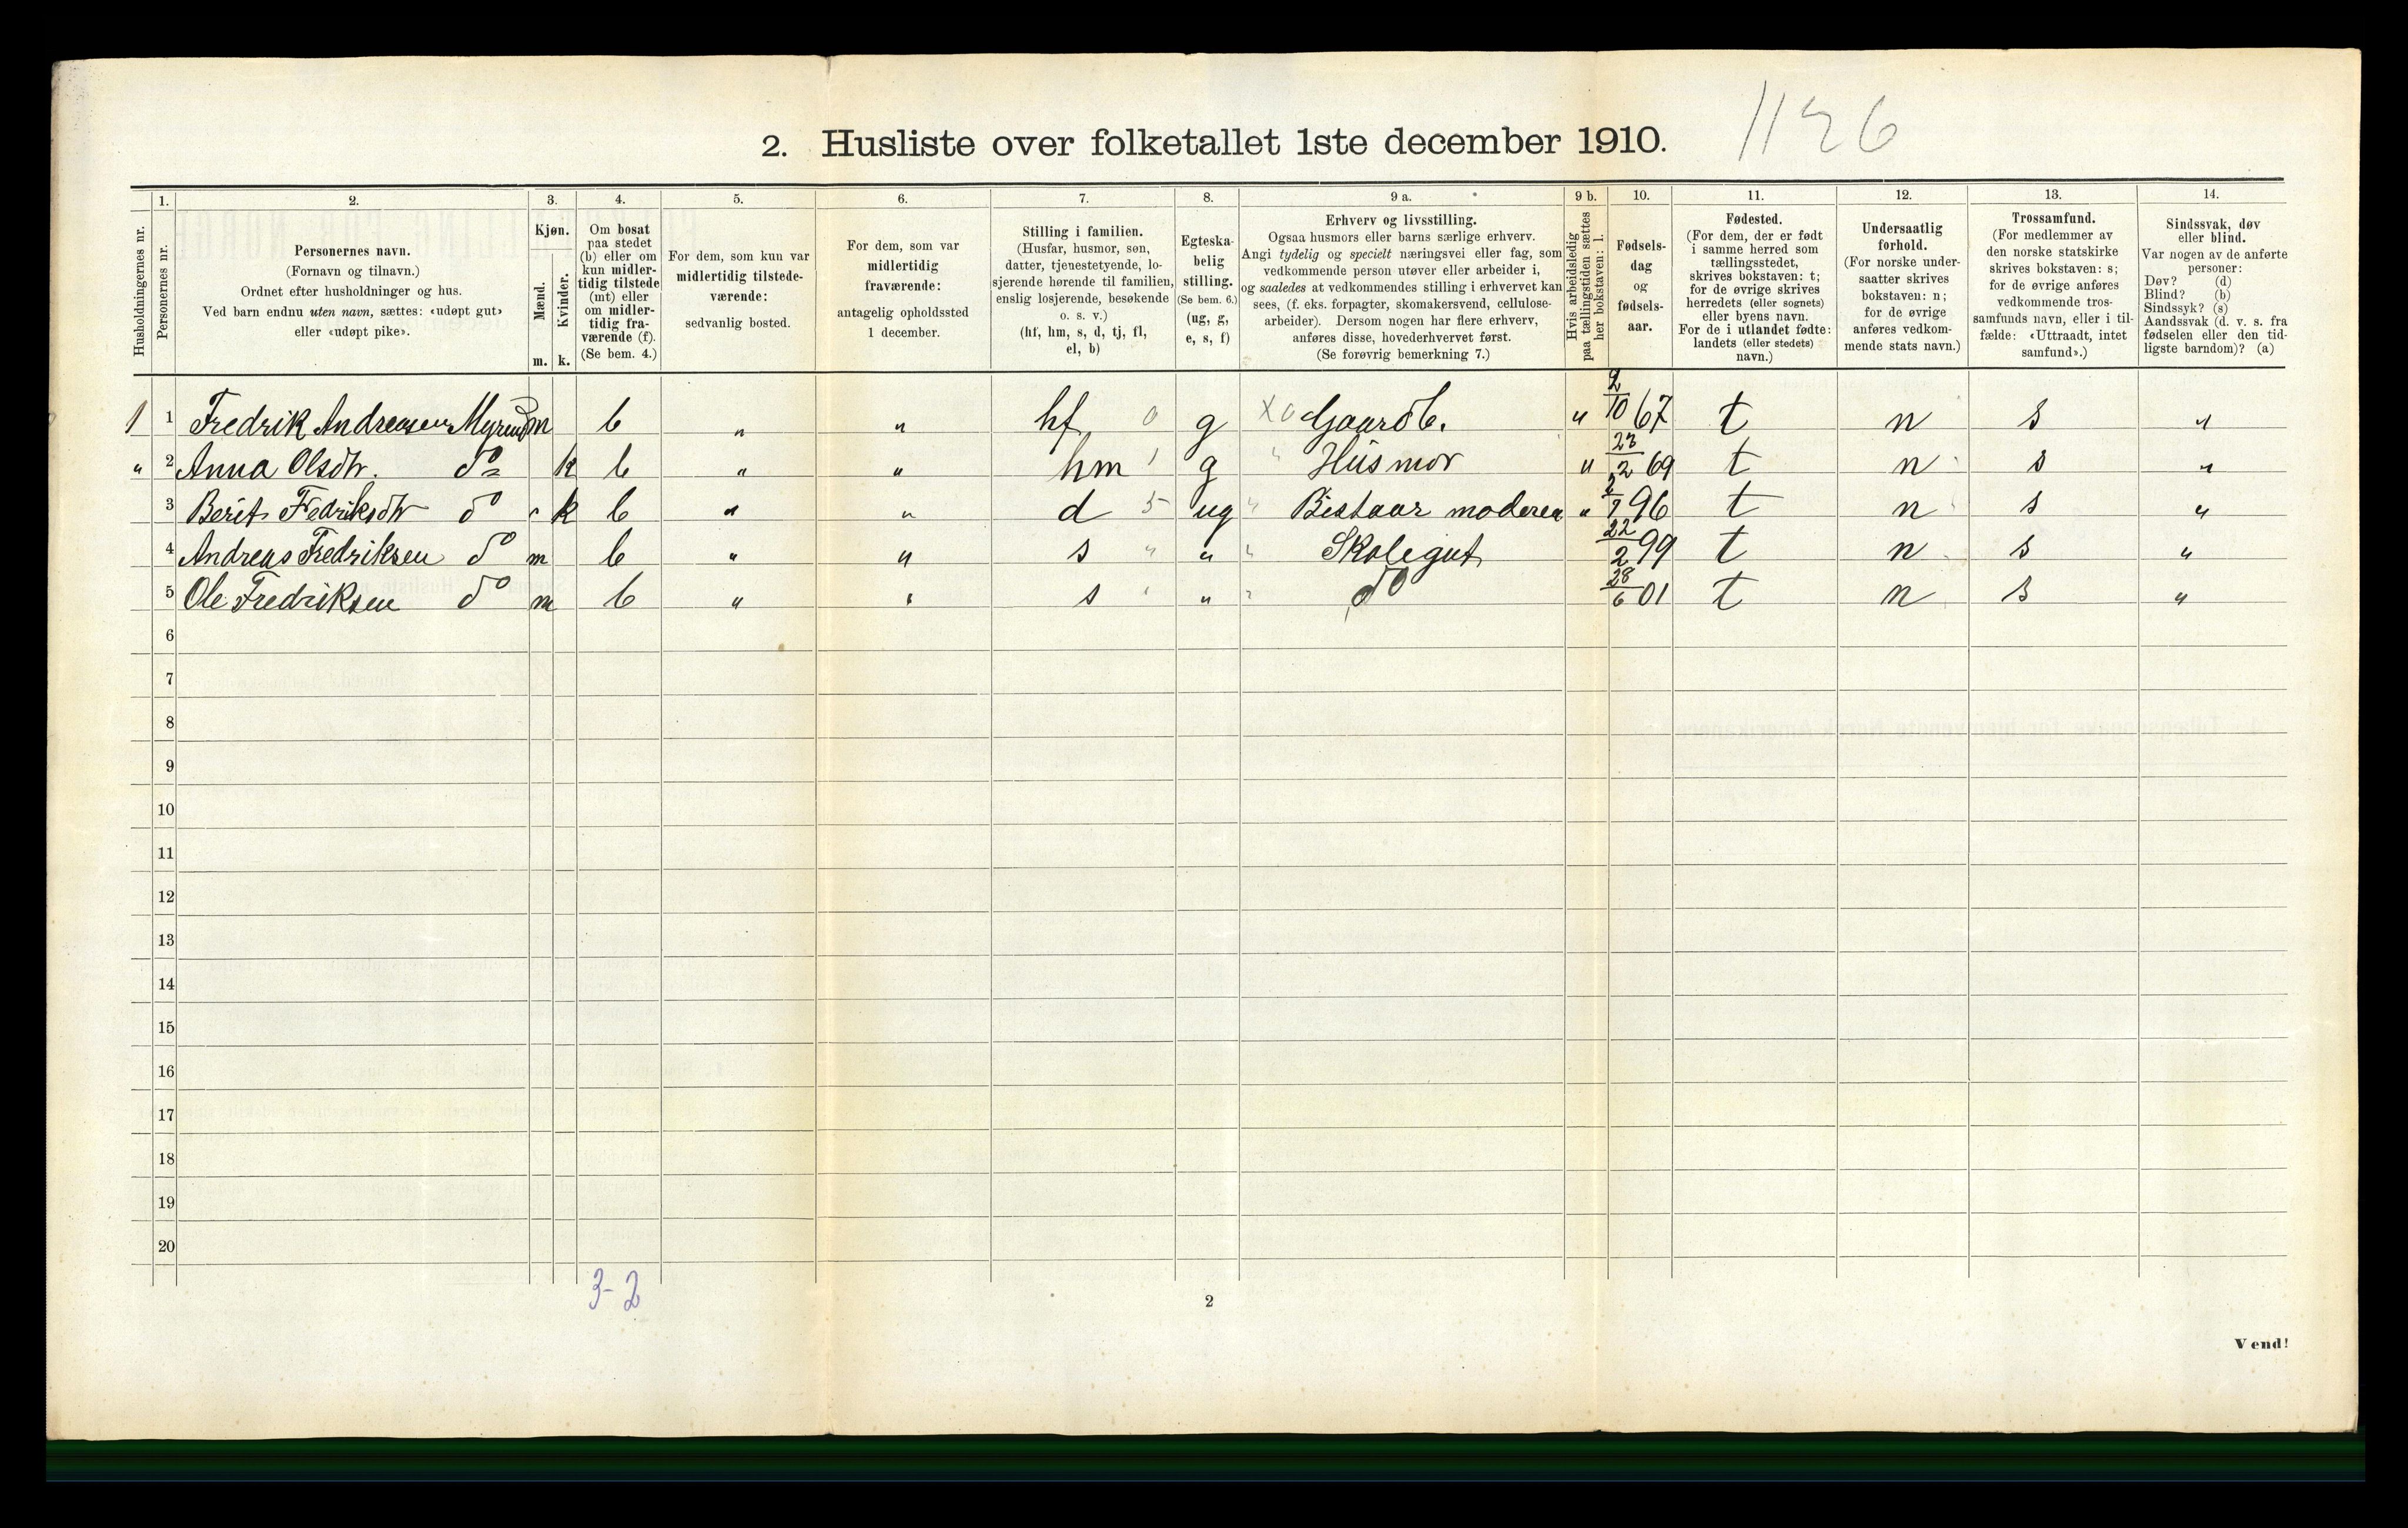 2. Husliste over folketallet 1ste december 1910.
1126
Husholdningernes nr.
1. Personernes nr.
2. Personernes navn. (Fornavn og tilnavn.) Ordnet efter husholdninger og hus. Ved barn endnu uten navn, sættes: «udøpt gut» eller «udøpt pike».
3. Kjøn. Mænd. m. Kvinder. k.
4. Om bosat paa stedet (b) eller om kun midlertidig tilstede (mt) eller om midlertidig fraværende (f). (Se bem. 4.)
5. For dem, som kun var midlertidig tilstedeværende: sedvanlig bosted.
6. For dem, som var midlertidig fraværende: antagelig opholdssted 1 december.
7. Stilling i familien. (Husfar, husmor, søn, datter, tjenestetyende, losjerende hørende til familien, enslig losjerende, besøkende o. s. v.) (hf, hm, s, d, tj, fl, el, b)
8. Egteskabelig stilling. (Se bem. 6.) (ug, g, e, s, f)
9 a. Erhverv og livsstilling. Ogsaa husmors eller barns særlige erhverv. Angi tydelig og specielt næringsvei eller fag, som vedkommende person utøver eller arbeider i, og saaledes at vedkommendes stilling i erhvervet kan sees, (f. eks. forpagter, skomakersvend, cellulosearbeider). Dersom nogen har flere erhverv, anføres disse, hovederhvervet først. (Se forøvrig bemerkning 7.)
9 b. Hvis arbeidsledig paa tællingstiden sættes her bokstaven: l.
10. Fødselsdag og fødselsaar.
11. Fødested. (For dem, der er født i samme herred som tællingsstedet, skrives bokstaven: t; for de øvrige skrives herredets (eller sognets) eller byens navn. For de i utlandet fødte: landets (eller stedets) navn.)
12. Undersaatlig forhold. (For norske undersaatter skrives bokstaven: n; for de øvrige anføres vedkommende stats navn.)
13. Trossamfund. (For medlemmer av den norske statskirke skrives bokstaven: s; for de øvrige anføres vedkommende trossamfunds navn, eller i tilfælde: «Uttraadt, intet samfund».)
14. Sindssvak, døv eller blind. Var nogen av de anførte personer: Døv? (d) Blind? (b) Sindssyk? (s) Aandssvak (d. v. s. fra fødselen eller den tidligste barndom)? (a)
1 1 Fredrik Andreasen m b " " hf 0 g X0 Gaardb. " 2/10 67 t n s "
" 2 Anna Olsdtr. do k b " " hm 1 g " Husmor " 23/2 69 t n s "
3 Berit Fedriksdtr do " k b " " d 5 ug " Bistaar moderen " 2/7 96 t n s "
4 Andreas Fredriksen do m b " " s " " " Skolegut 22/2 99 t n s "
5 Ole Fredriksen do m b " " s " " " do 28/6 01 t n s "
6
7
8
9
10
11
12
13
14
15
16
17
18
19
20
3-2
2
Vend!